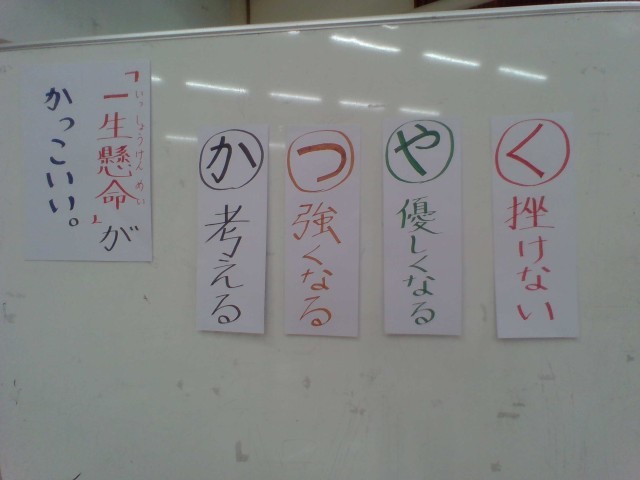 いっしょうけんめい
「一生懸命」が
かっこいい。
か 考える
つ 強くなる
や 優しくなる
く 挫けない